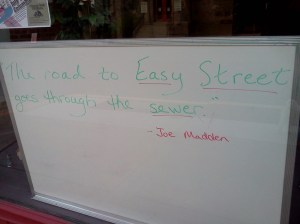 "The road to Easy Street
goes through the sewer."
- Joe Madden